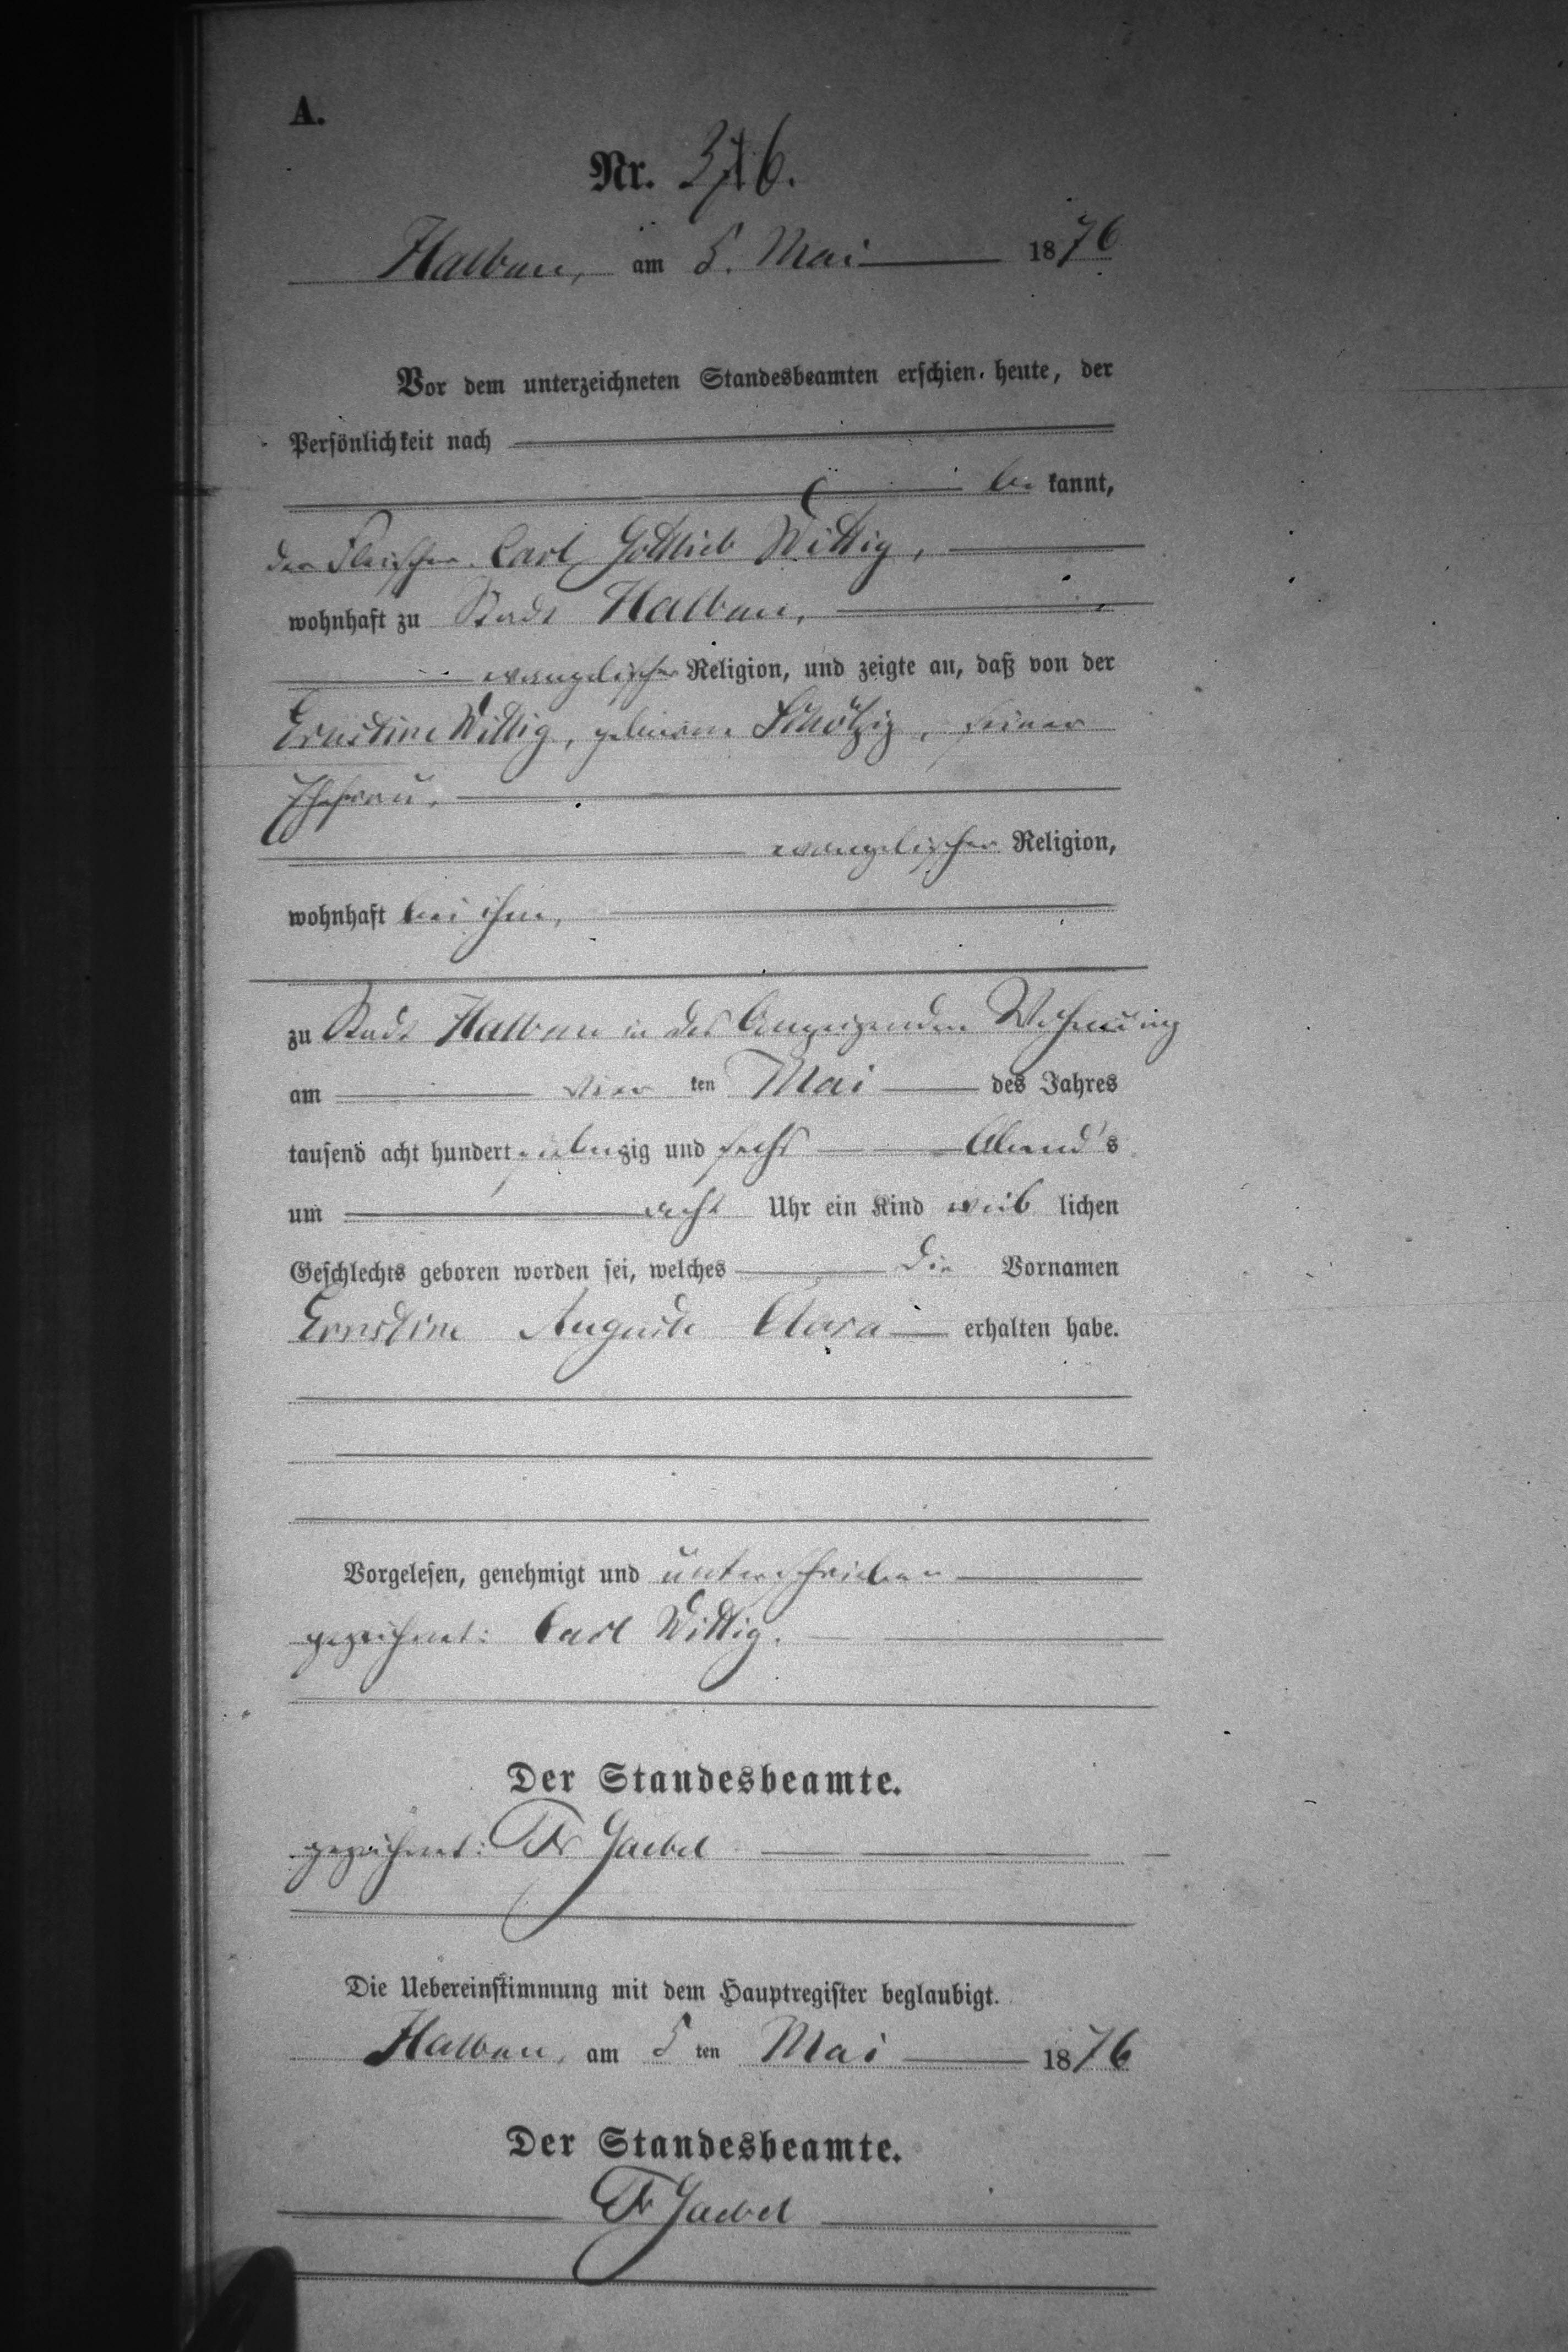 A.
Nr. 36.
Halbau, am 5. Mai 1876
Vor dem unterzeichneten Standesbeamten erschien heute, der
Persönlichkeit nach
be kannt,
der Fleischer Carl Gottlieb Wittig,
wohnhaft zu Stadt Halbau,
evangelischer Religion, und zeigte an, daß von der
Ernstine Wittig, geborene seiner
Ehefrau,
evangelischer Religion,
wohnhaft bei ihm,
zu Stadt Halbau in des Anzeigenden Wohnung
am vier ten Mai des Jahres
tausend acht hundert siebenzig und sechs Abend's
um acht Uhr ein Kind weib lichen
Geschlechts geboren worden sei, welches die Vornamen
Ernstine Auguste Clara erhalten habe.
Vorgelesen, genehmigt und unterschrieben
gezeichnet: Carl Wittig.
Der Standesbeamte.
gezeichnet: Fr Jaebel
Die Uebereinstimmung mit dem Hauptregister beglaubigt.
Halbau, am 5 ten Mai 1876
Der Standesbeamte.
Fr Jaebel